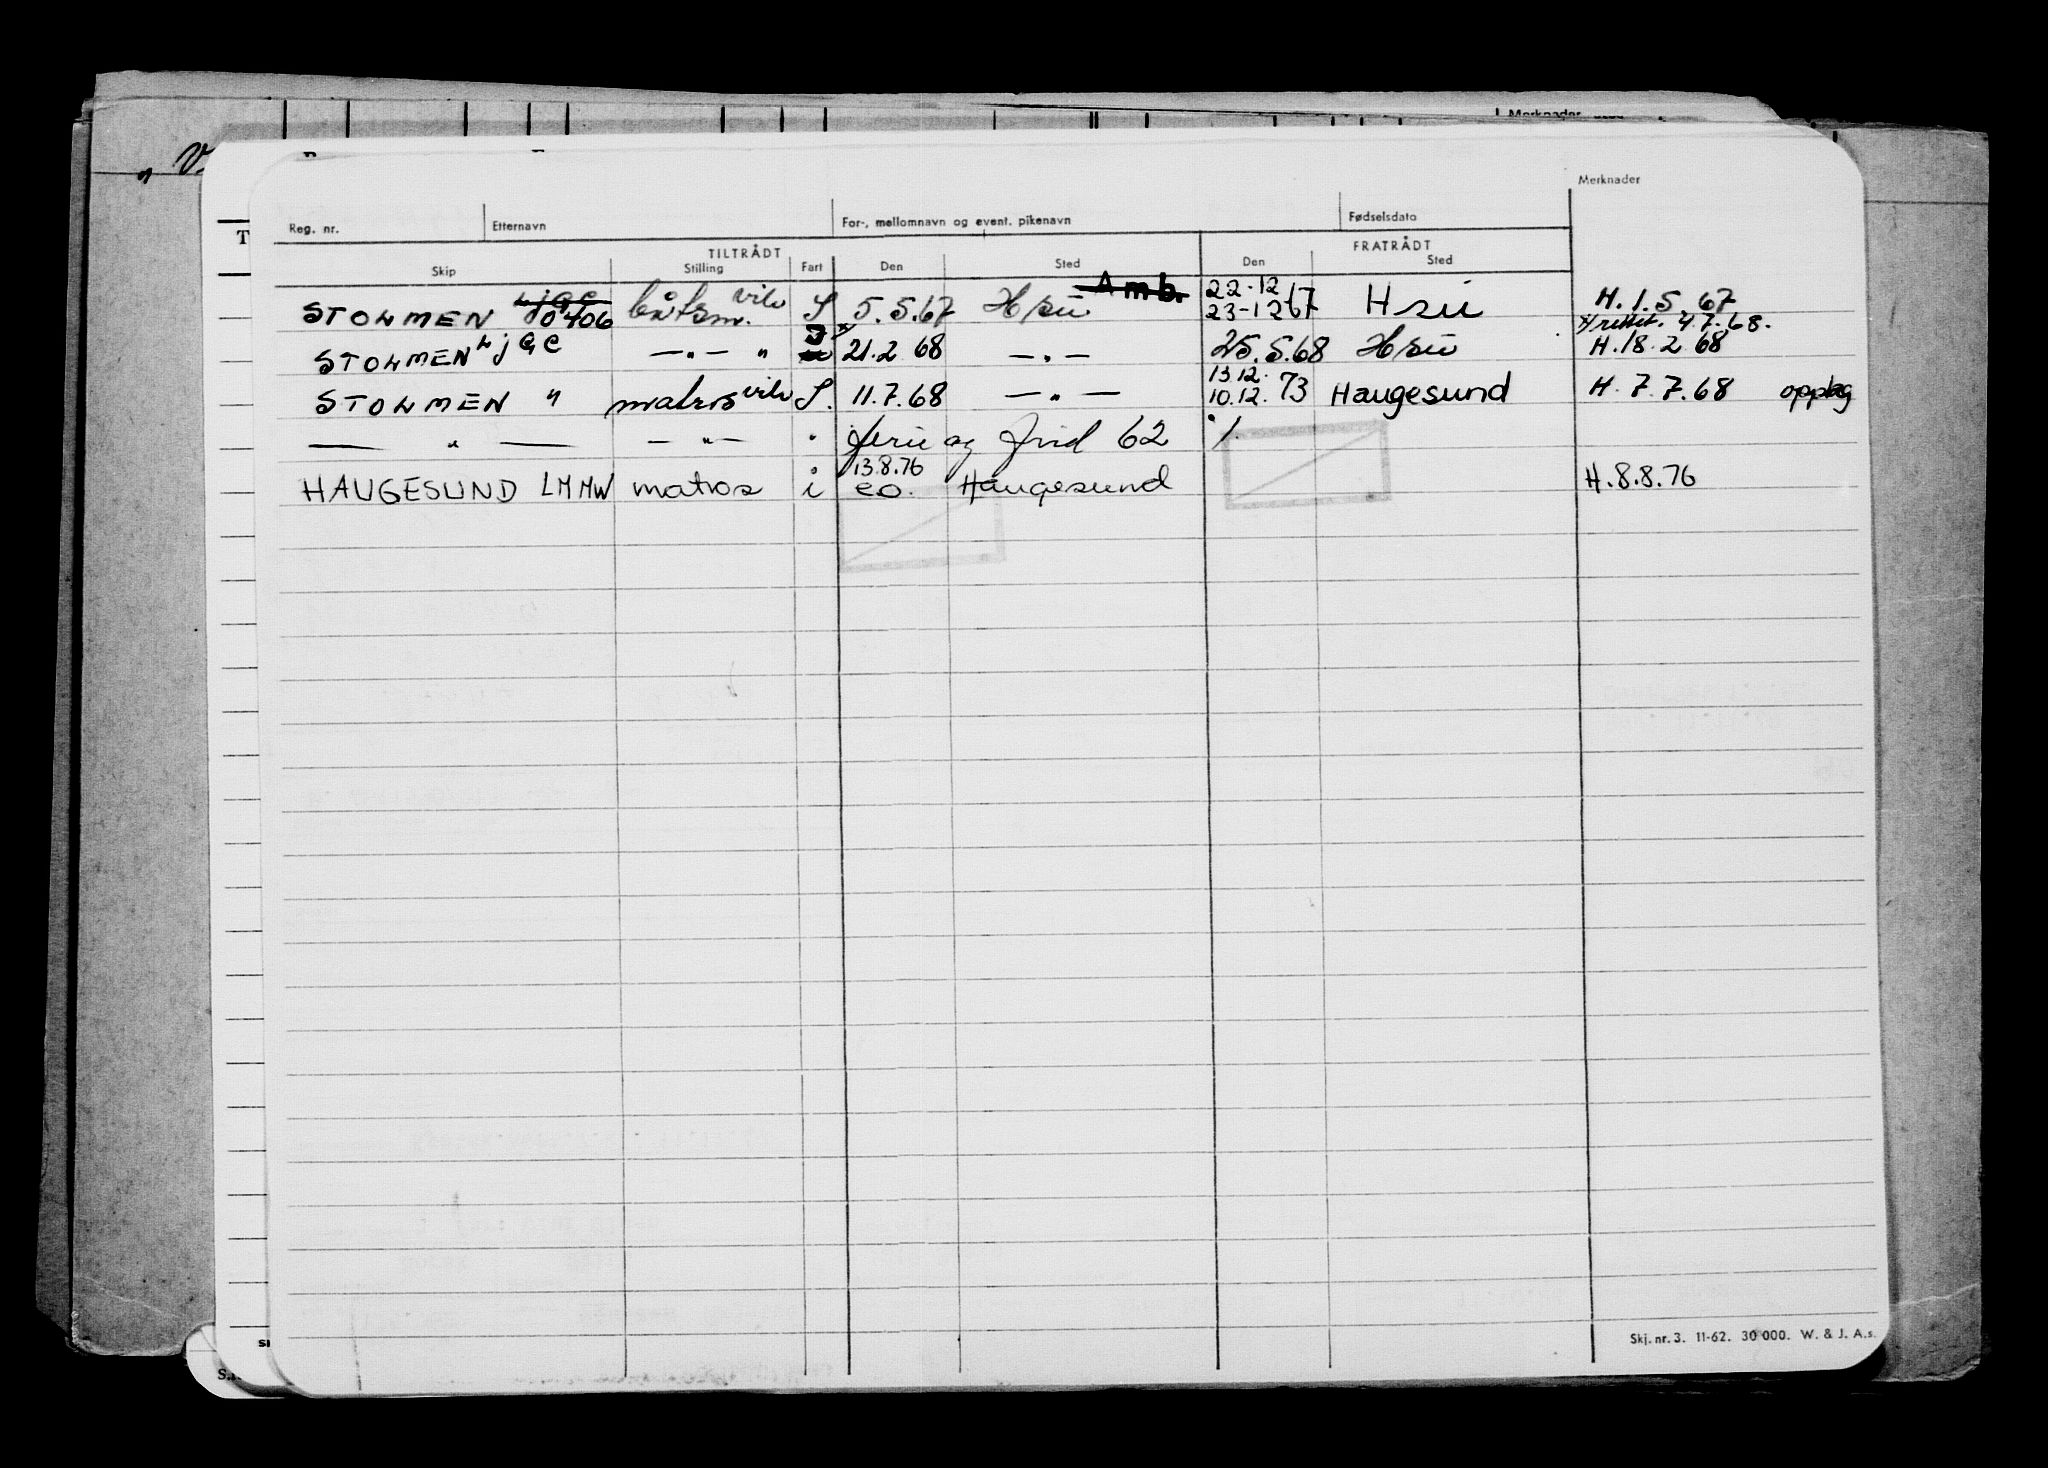 Merknader
Merknader
Reg. nr. Etternavn For-, mellomnavn og event. pikenavn Fødselsdato
TILTRÅDT FRATRÅDT
Skip Stilling Fart Den Sted Den Sted
Amb. 22-12
STOLMEN LJGC 0406 båtsm. vikv S 5.5.67 Hsu 23-12 67 Hsu H. 1.5.67
x/ rettet. 4.7.68.
STOLMEN LJGC —"— " 21.2 68 —"— 25.5.68 Hsu H. 18.2 68
13.12.
STOLMEN " matros vikv S. 11.7.68 —"— 10.12. 73 Haugesund H. 7.7.68 opplag
— " — —"— " ferie og frid 62 "/.
13.8.76
HAUGESUND LMMW matros i e.o. Haugesund H.8.8.76
Skj. nr. 3. 11-62. 30 000. W. & J. A.s.